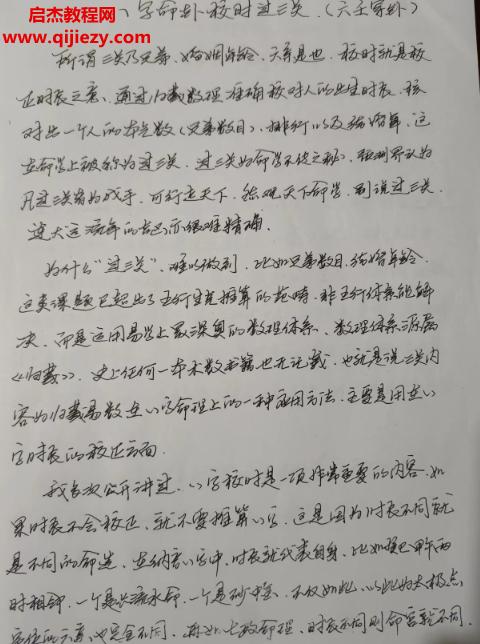 启杰教程网
www.qijiezy.com
八字命卦校时过三关.(六壬穿卦)
所谓三关乃兄弟、婚姻年龄、六亲是也. 校时就是校
正时辰之意. 通过归藏数理准确核对人的出生时辰. 核
对出一个人的本先数(兄弟数目)、排行以及结婚年. 这
在命学上被称为过三关. 过三关为命学不传之秘. 预测界认为
凡过三关者为成手. 可行走天下. 综观天下命学, 别说过三关.
连大运流年的起示很难精确.
为什么“过三关”, 难以做到. 比如兄弟数目、结婚年龄.
这类课题已超出了五行生克推算的范畴. 非五行体系能解
决. 而是运用易学上最深奥的数理体系. 数理体系源于
《归藏》. 史上任何一本术数书籍也无记载. 也就是说三关内
容为归藏易数在八字命理上的一种应用方法. 主要是用在八
字时辰的校正方面.
我多次公开讲过. 八字校时是一项非常重要的内容. 如
果时辰不会校正, 就不要推算八字. 这是因为时辰不同就
是不同的命造. 在纳音八字中. 时辰就代表自身. 比如癸巳甲午两
时相钟. 一个是长流水命. 一个是砂中金. 不仅如此. 以此为太极点
也完全不同. 再如七政命理. 时辰不同则命宫就不同.